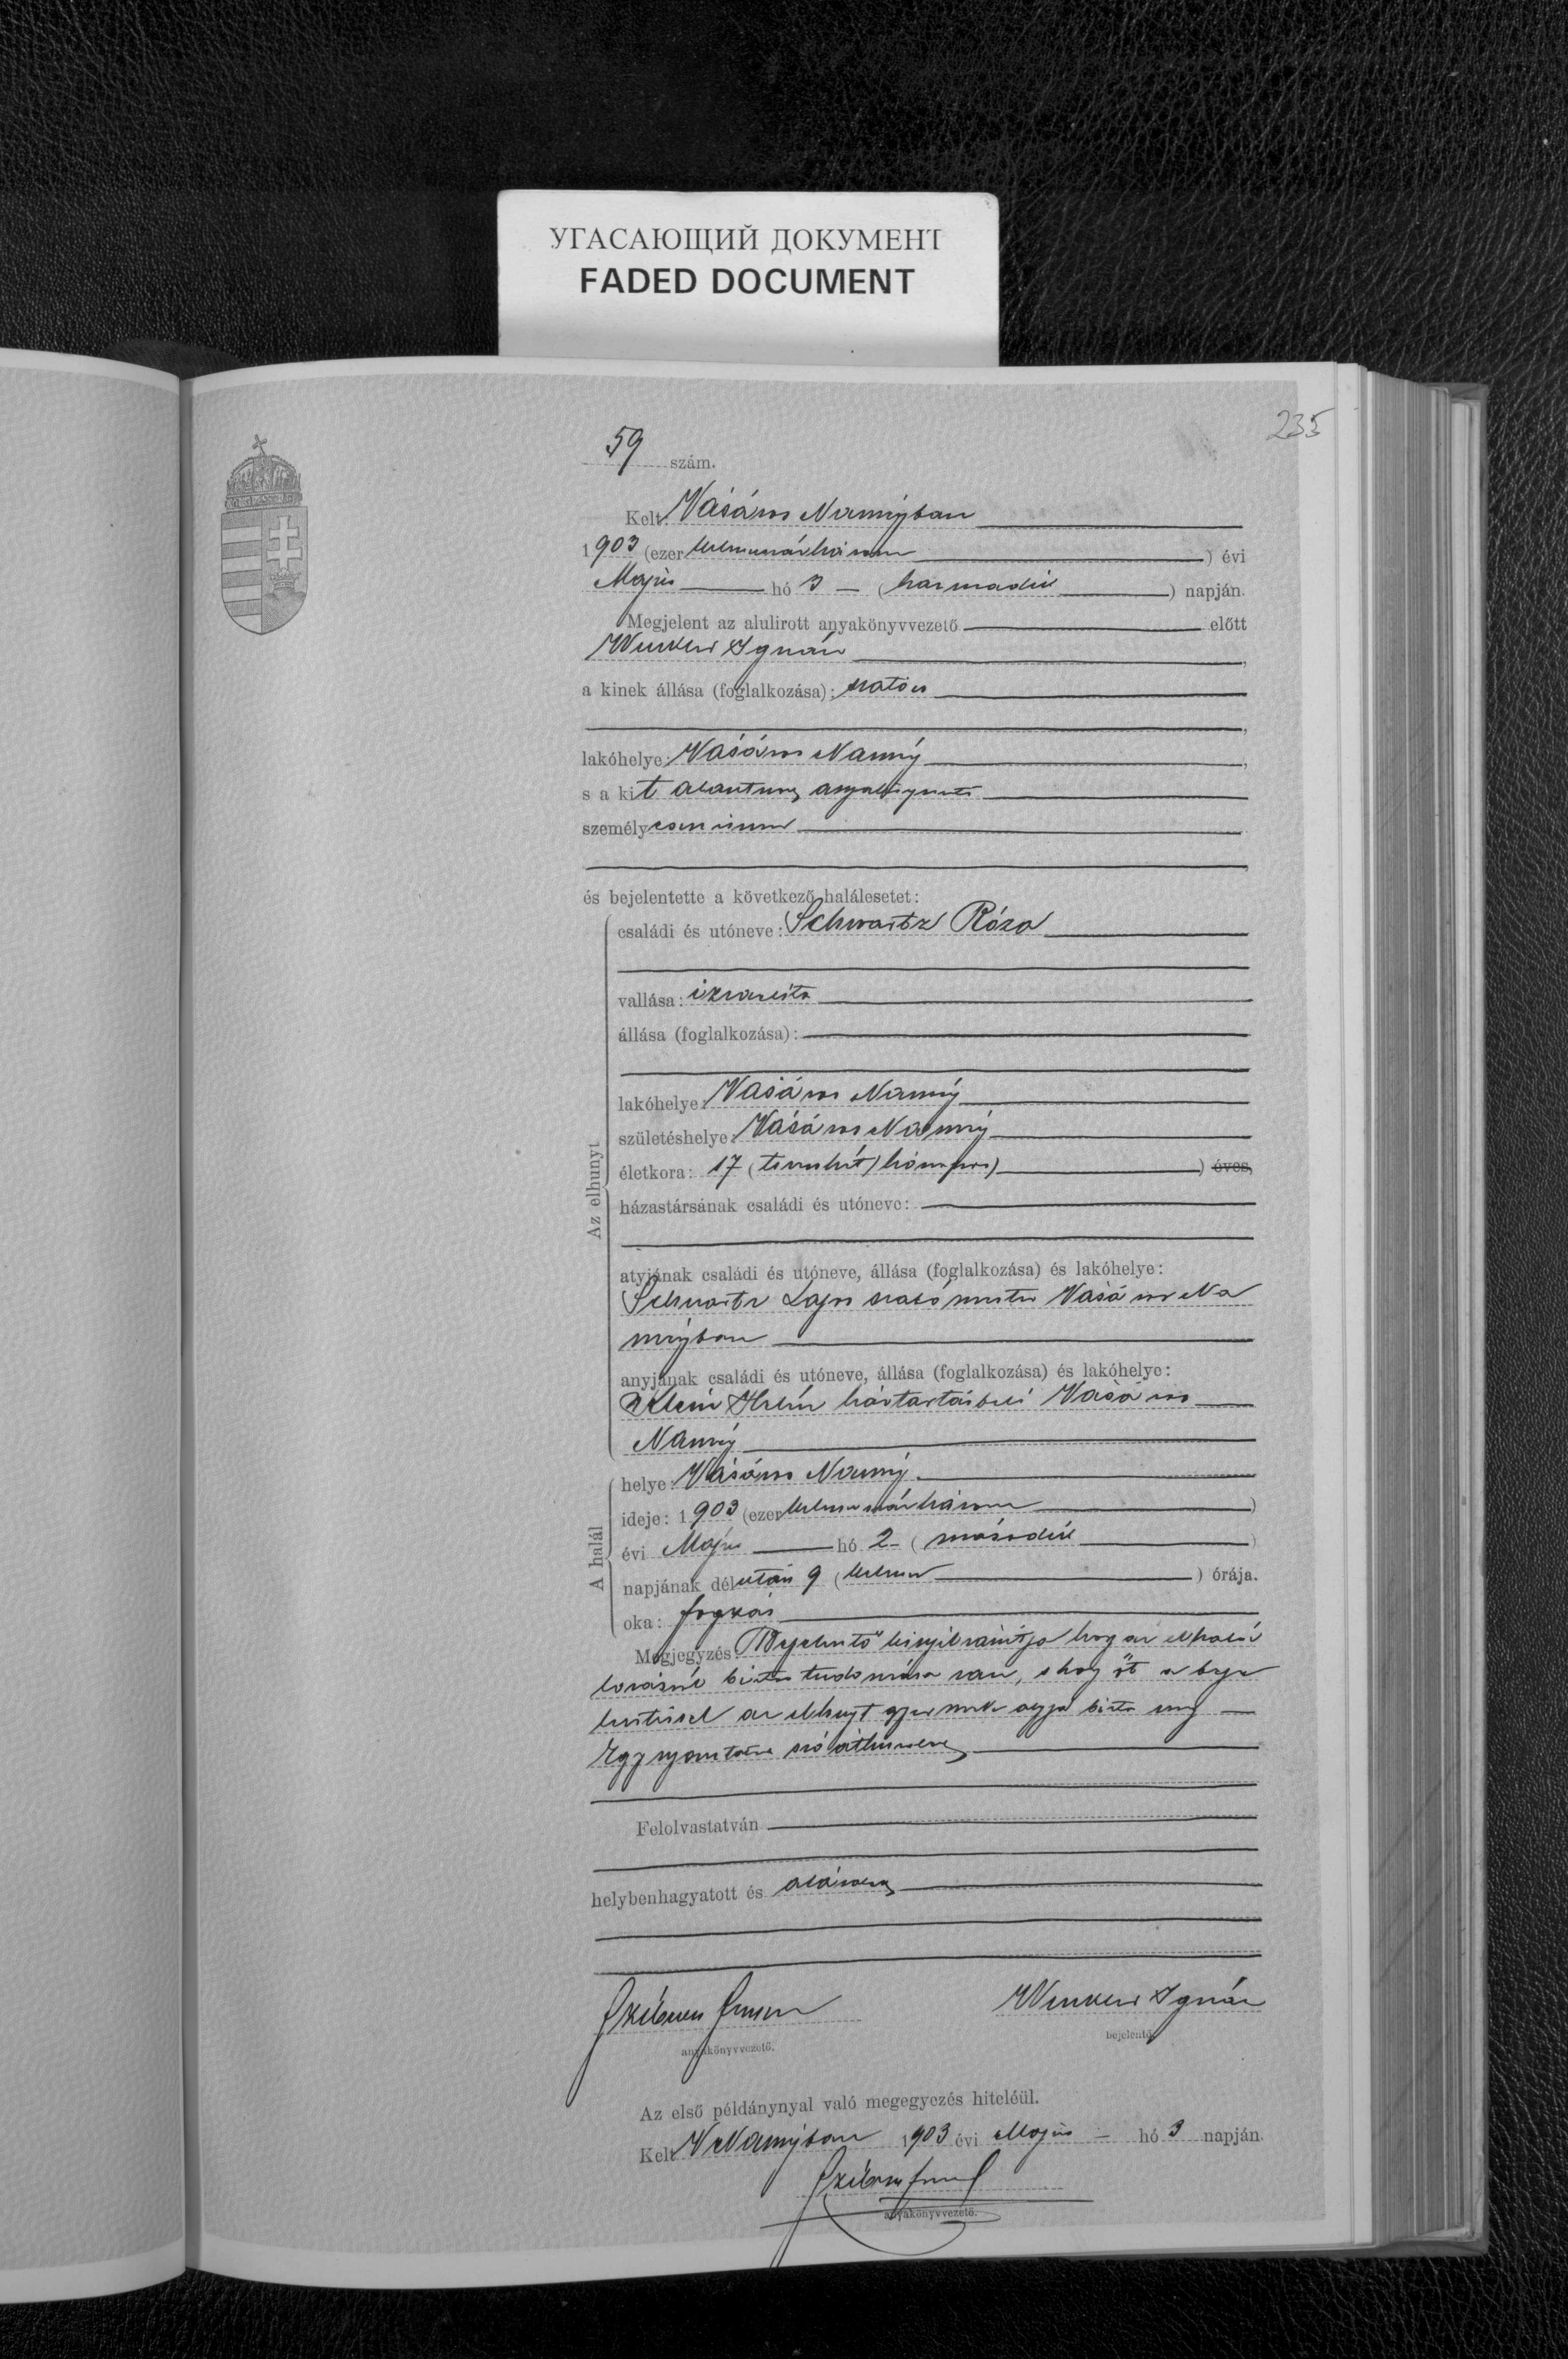 УГАСАЮЩИЙ ДОКУМЕНТ
FADED DOCUMENT
235
59 szám.
Kelt Vásáros Naményban
1903 (ezer kilenczszázhárom) évi
Május hó 3 (harmadik) napján.
Megjelent az alulirott anyakönyvvezető előtt
Ignácz,
a kinek állása (foglalkozása):
lakóhelye: Vásáros Namény,
s a kit alantirt anyakönyvvezető
személyesen ismer
és bejelentette a következő halálesetet:
Az elhunyt
családi és utóneve: Schwartz Róza
vallása: izraelita
állása (foglalkozása):
lakóhelye: Vásáros Namény
születéshelye: Vásáros Namény
életkora: 17 (tizenhét) hónapos) éves,
házastársának családi és utóneve:
atyjának családi és utóneve, állása (foglalkozása) és lakóhelye:
Schwartz Lajos szabó mester Vásáros Na
ményban
anyjának családi és utóneve, állása (foglalkozása) és lakóhelye:
Klein háztartásbeli Vásáros
Namény
A halál
helye: Vásáros Namény
ideje: 1903 (ezer kilenczszázhárom)
évi Május hó 2 (második)
napjának délután 9 (kilencz) órája.
oka: fogzás
Megjegyzés: Bejelentő kinyilvánítja hogy az elhalá
lozásról biztos tudomása van, s hogy őt a beje
lentéssel az elhunyt gyermek atyja bizta meg
Egy nyomtatott szó áthúzva
Felolvastatván
helybenhagyatott és aláíratott
anyakönyvvezető.
Ignácz
bejelentő.
Az első példánynyal való megegyezés hiteléül.
Kelt V Naményban 1903 évi Május hó 3 napján.
anyakönyvvezető.